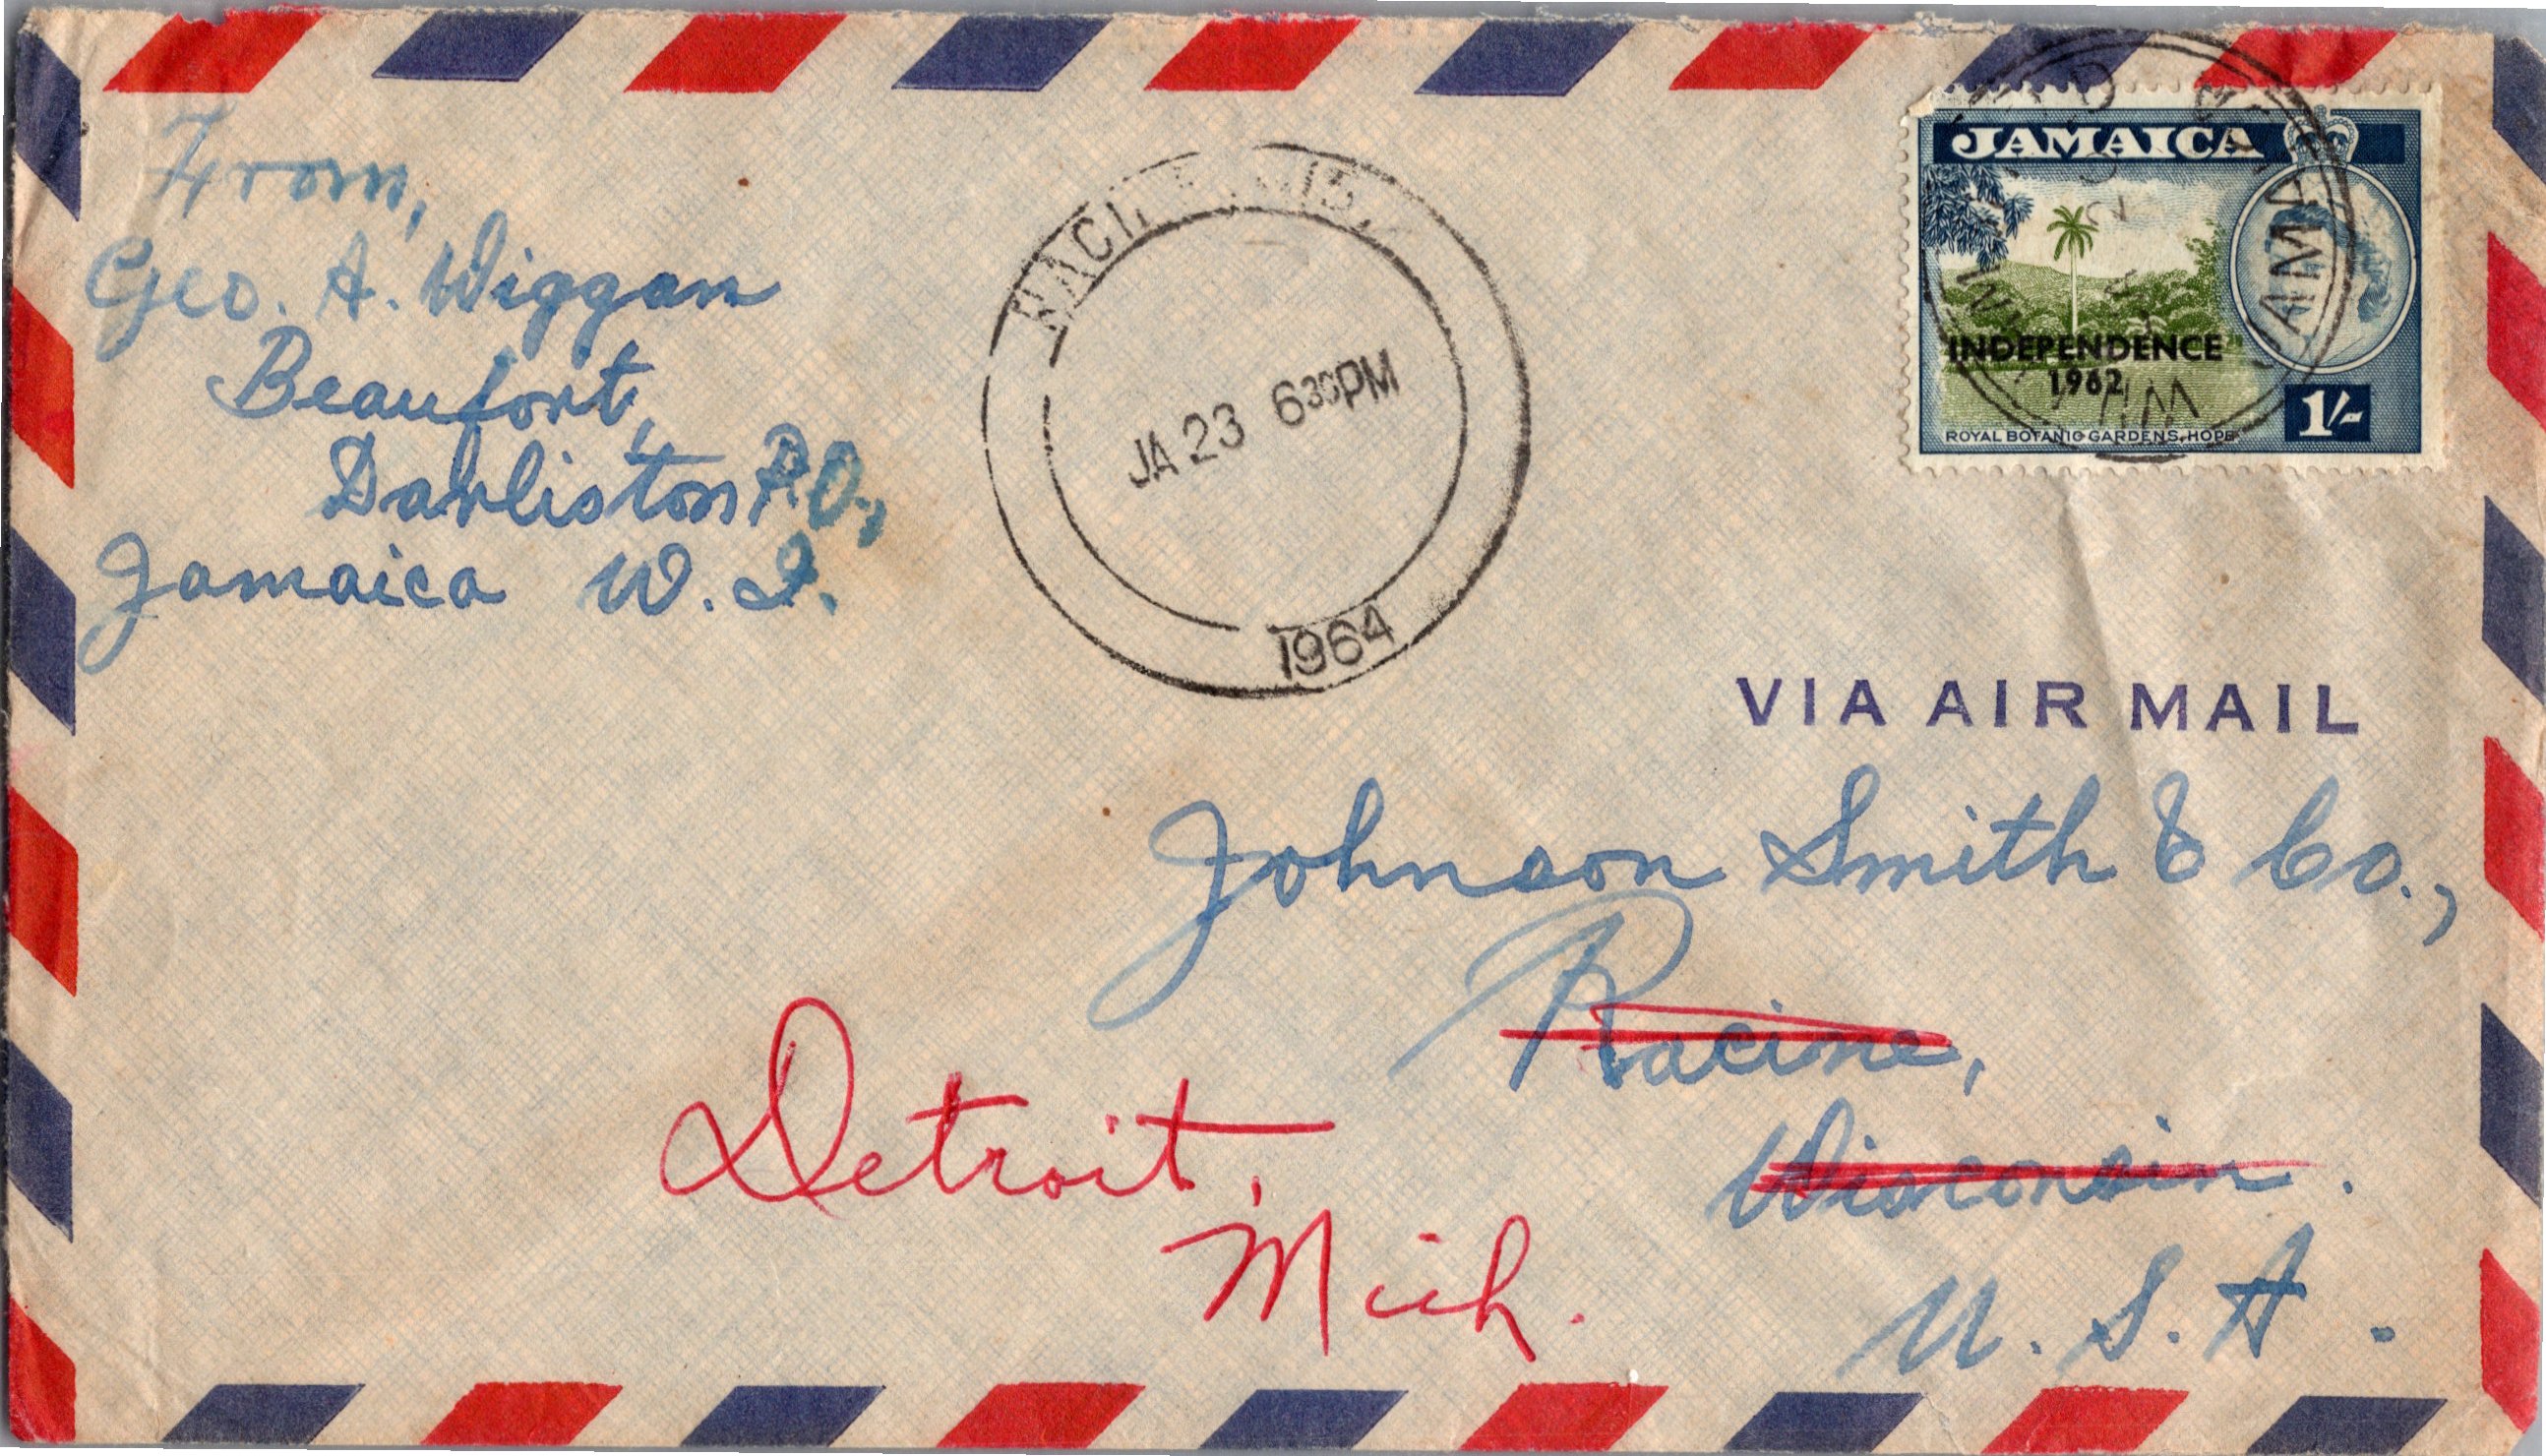 From,
Geo. A. Wiggan
Beaufort,
Darliston P.O.,
Jamaica W. I.
JA 23 6 30 PM
1964
JAMAICA
INDEPENDENCE
1962
1/-
ROYAL BOTANIC GARDENS, HOPE
JAMAICA
VIA AIR MAIL
Johnson Smith & Co.,
Racine,
Wisconsin.
U. S. A.
Detroit,
Mich.